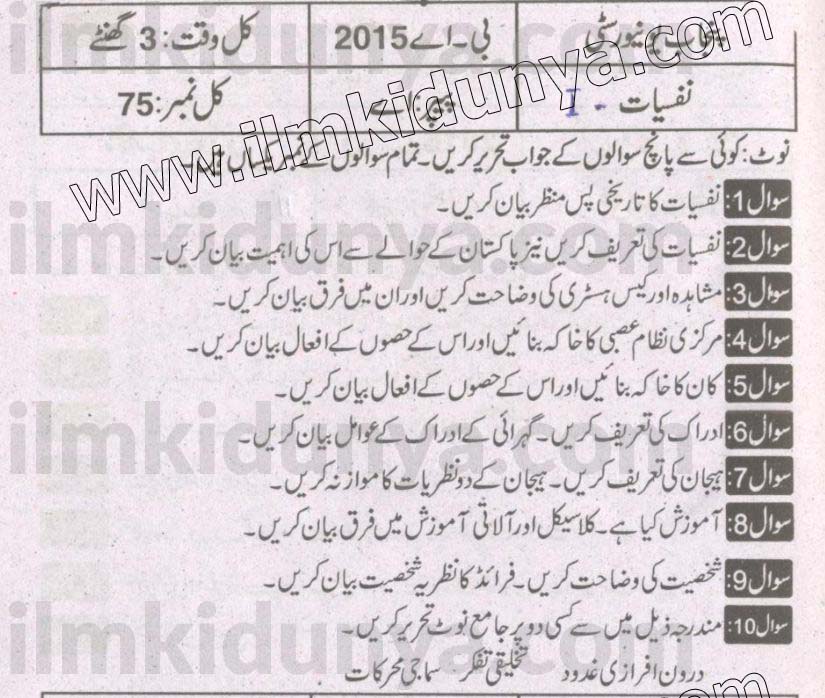 پنجاب یونیورسٹی بی۔اے 2015 کل وقت: 3 گھنٹے
نفسیات - I پیپر: اے کل نمبر: 75
نوٹ: کوئی سے پانچ سوالوں کے جواب تحریر کریں۔ تمام سوالوں کے نمبر یکساں ہیں۔
سوال 1: نفسیات کا تاریخی پس منظر بیان کریں۔
سوال 2: نفسیات کی تعریف کریں نیز پاکستان کے حوالے سے اس کی اہمیت بیان کریں۔
سوال 3: مشاہدہ اور کیس ہسٹری کی وضاحت کریں اور ان میں فرق بیان کریں۔
سوال 4: مرکزی نظام عصبی کا خاکہ بنائیں اور اس کے حصوں کے افعال بیان کریں۔
سوال 5: کان کا خاکہ بنائیں اور اس کے حصوں کے افعال بیان کریں۔
سوال 6: ادراک کی تعریف کریں۔ گہرائی کے ادراک کے عوامل بیان کریں۔
سوال 7: ہیجان کی تعریف کریں۔ ہیجان کے دو نظریات کا موازنہ کریں۔
سوال 8: آموزش کیا ہے۔ کلاسیکل اور آلاتی آموزش میں فرق بیان کریں۔
سوال 9: شخصیت کی وضاحت کریں۔ فرائڈ کا نظریہ شخصیت بیان کریں۔
سوال 10: مندرجہ ذیل میں سے کسی دو پر جامع نوٹ تحریر کریں۔
درون افرازی غدود تخلیقی تفکر سماجی محرکات
www.ilmkidunya.com
ilmkidunya.com
ilmkidunya.com
ilmkidunya.com
ilmkidunya.com